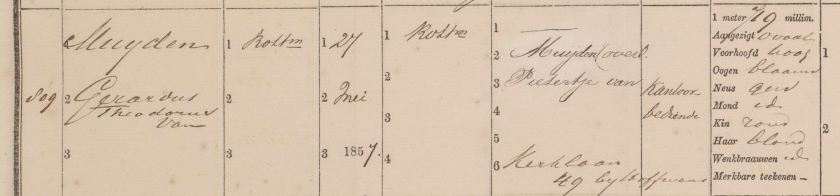 809
Muyden
2 Gerardus
Theodorus
van
3
1 Rottm
2
3
1 27
2 Mei
3 1857.
1 Rottm
2
3
4
1
2 Muyden (overl.
3 Pietertje van
4
5
6 Kerklaan
49 by Hoffmans
Kantoor-
bediende
1 meter 719 millim.
Aangezigt ovaal
Voorhoofd hoog
Oogen blaauw
Neus gew
Mond id
Kin rond
Haar blond
Wenkbraauwen id
Merkbare teekenen –
1
2